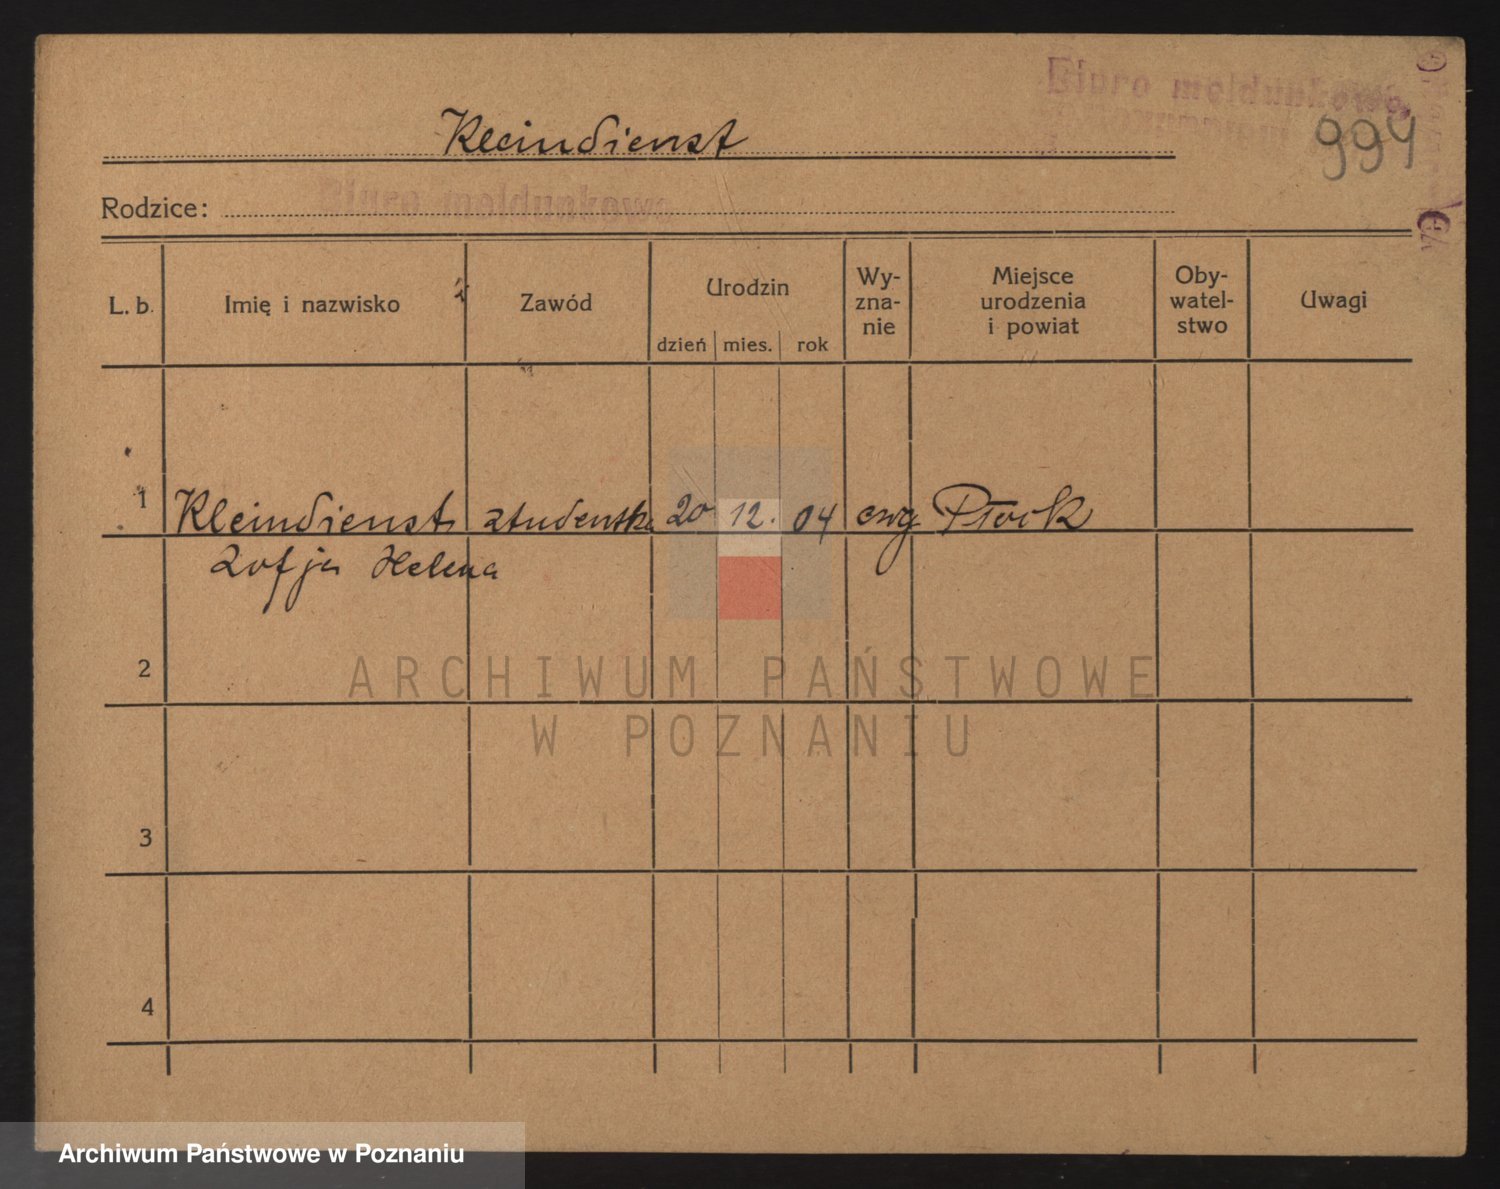 Biuro meldunkowe
Kleindienst
994
Rodzice:
Biuro meldunkowe
L. b.
Imię i nazwisko
Zawód
Urodzin
dzień
mies.
rok
Wy-
zna-
nie
Miejsce
urodzenia
i powiat
Oby-
watel-
stwo
Uwagi
1 Kleindienst studentka 20 12. 04 ewg Płock
Zofja Helena
2
3
4
ARCHIWUM PAŃSTWOWE
W POZNANIU
Archiwum Państwowe w Poznaniu